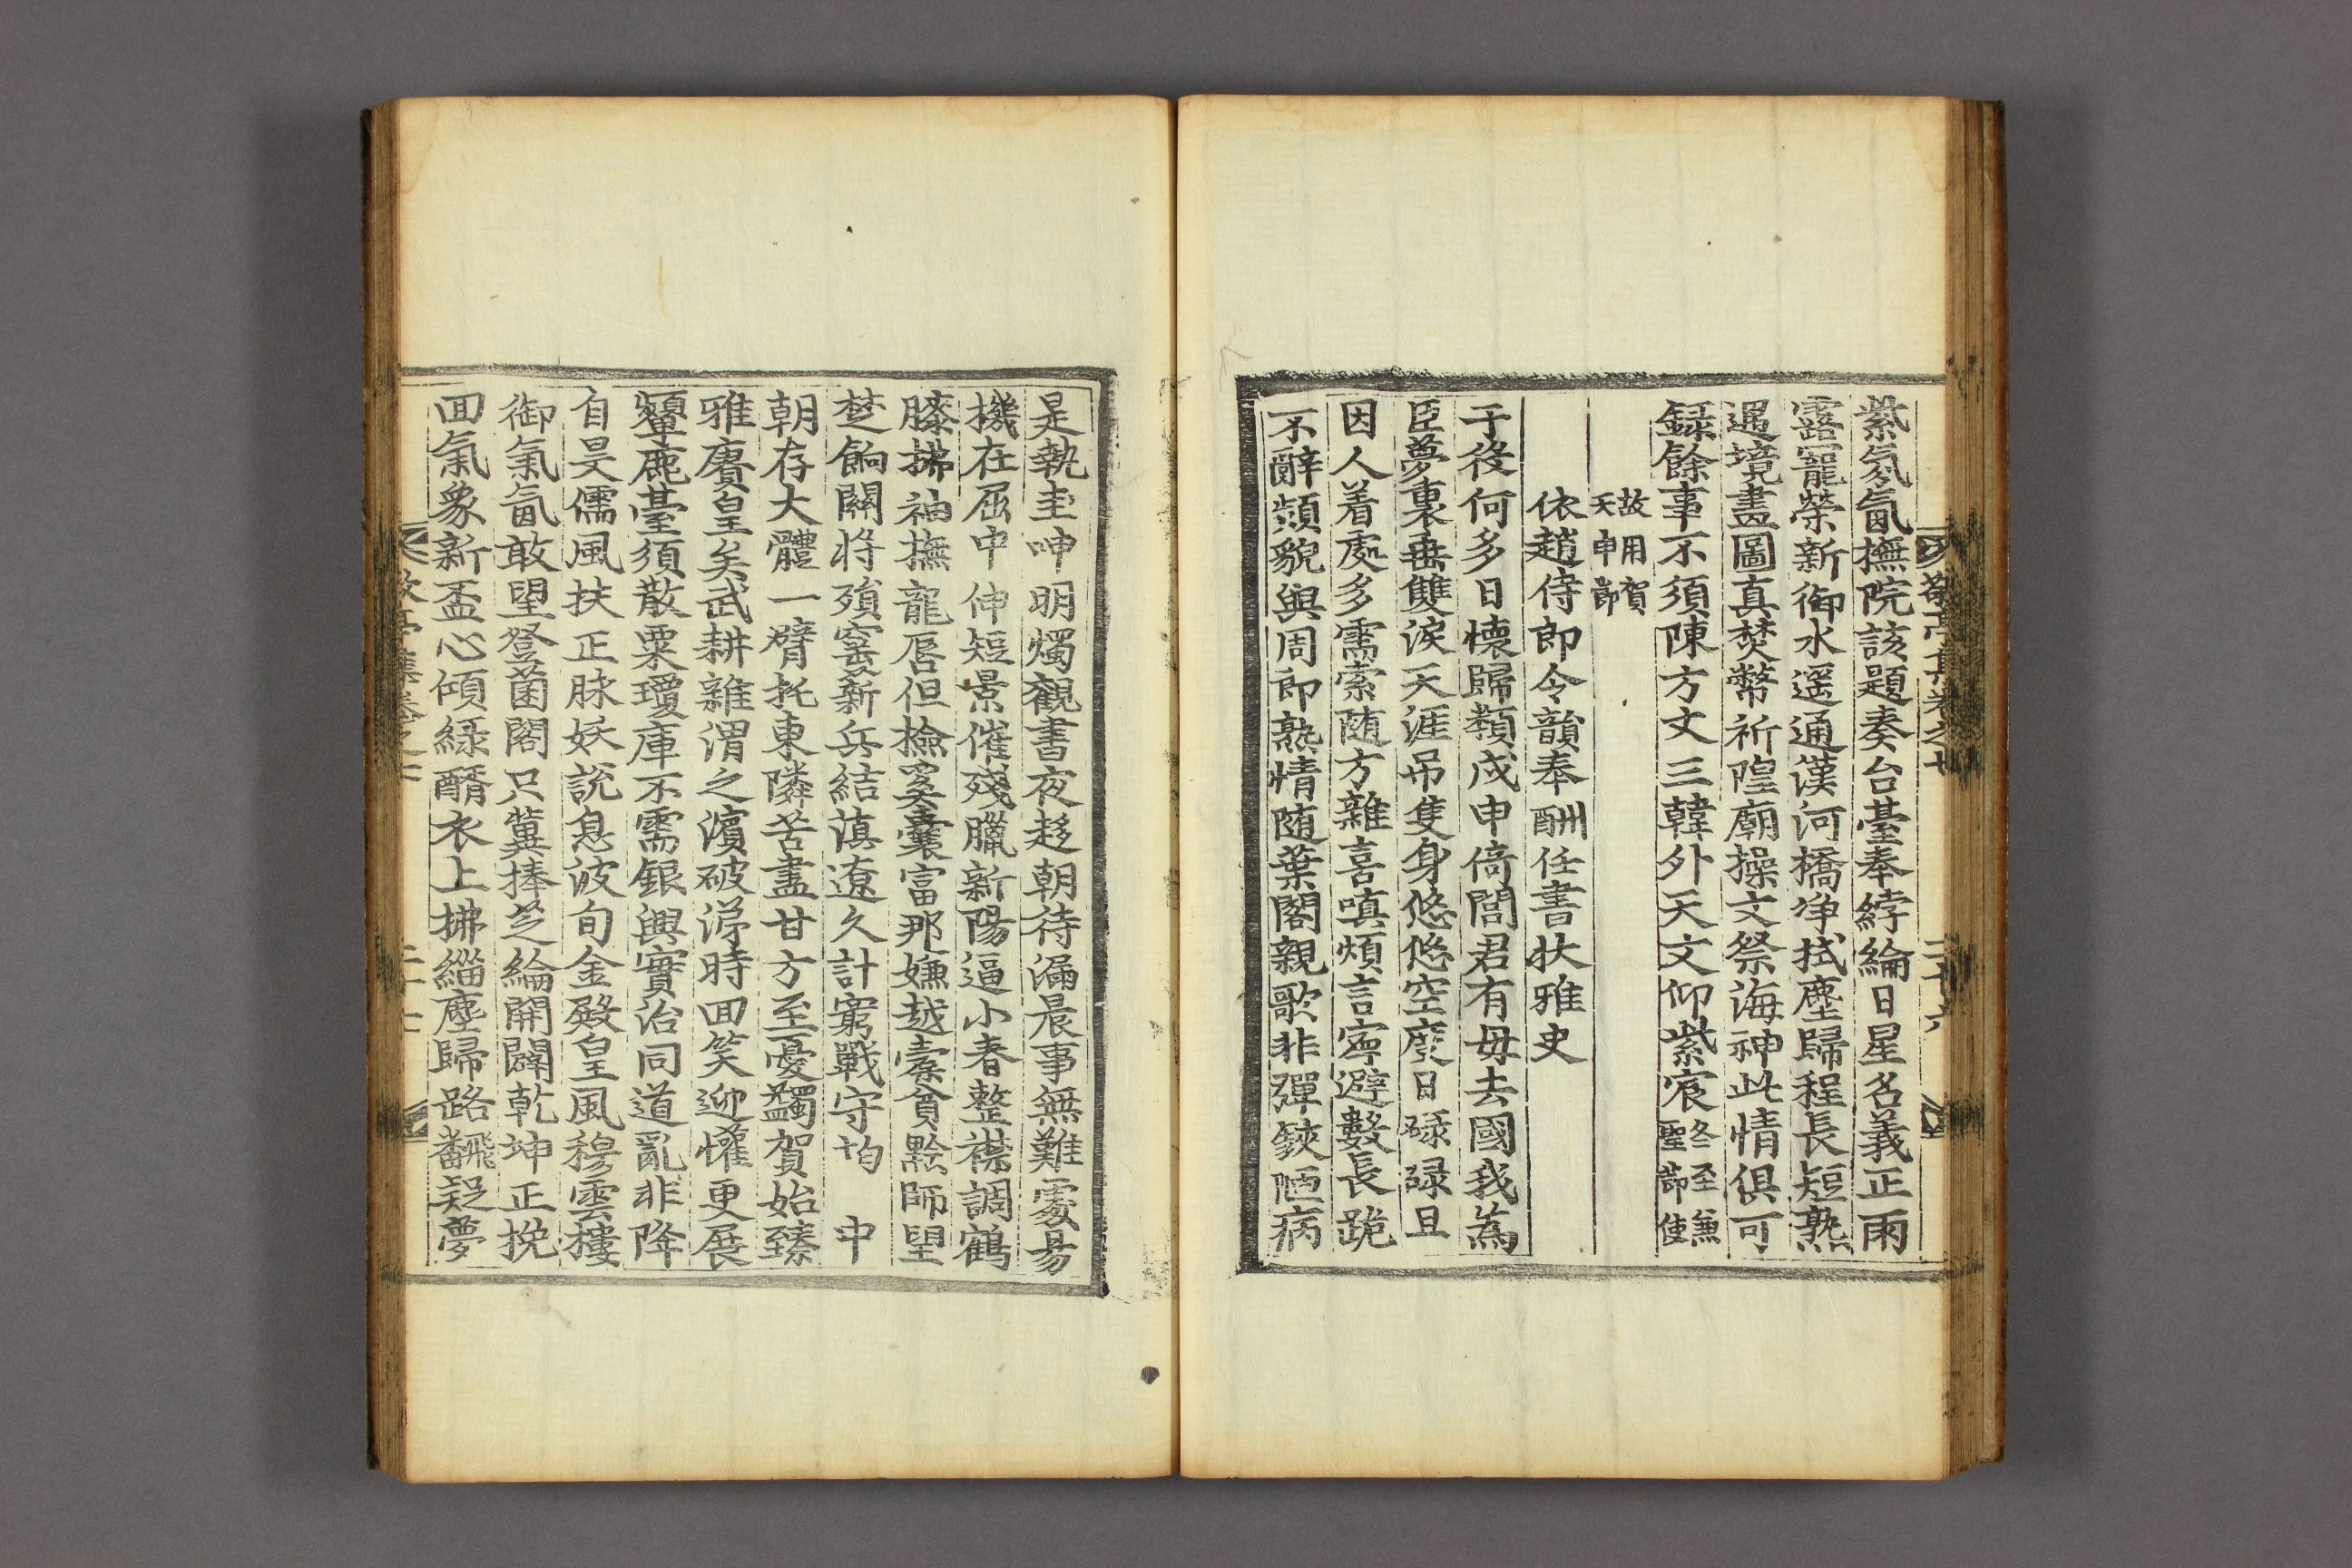 紫氛氳撫院該題奏台臺奉綍綸日星名義正雨
露寵榮新御水遥通漢河橋净拭塵歸程長短熟
遇境畫圖真焚幣祈隍廟操文祭海神此情俱可
録餘事不須陳方文三韓外天文仰紫宸冬至兼聖節使
故用賀天申節
依趙侍郎令韻奉酬任書狀雅史
于役何多日懷歸類戍申倚閭君有毋去國我為
臣夢裏垂雙淚天涯吊隻身悠悠空度日碌碌且
因人着處多需索随方雜喜嗔煩言寧避數長跪
不辭頻貌與周郎熟情随葉閣親歌非彈鋏陋病
敬亭集卷之七
二十六
是執圭呻明燭觀書夜趍朝待漏晨事無難處易
機在屈中伸短景催殘臘新陽逼小春整襟調鶴
膝拂袖撫龍唇但撿奚囊富那嫌越橐貧黔師望
楚餉關將殞窑新兵結滇遼久計窮戰守均 中
朝存大體一臂托東隣苦盡甘方至憂蠲賀始臻
雅賡皇矣武耕雜渭之濱破涕時囬笑迎懽更展
顰鹿臺須散粟瓊庫不需銀興實治同道亂非降
自旻儒風扶正脉妖説息波旬金殿皇風穆雲樓
御氣氤敢望登菌閣只冀捧芝綸開闢乾坤正挽
囬氣象新盃心傾緑醑衣上拂緇塵歸路飜疑夢
敬亭集卷之七
二十七